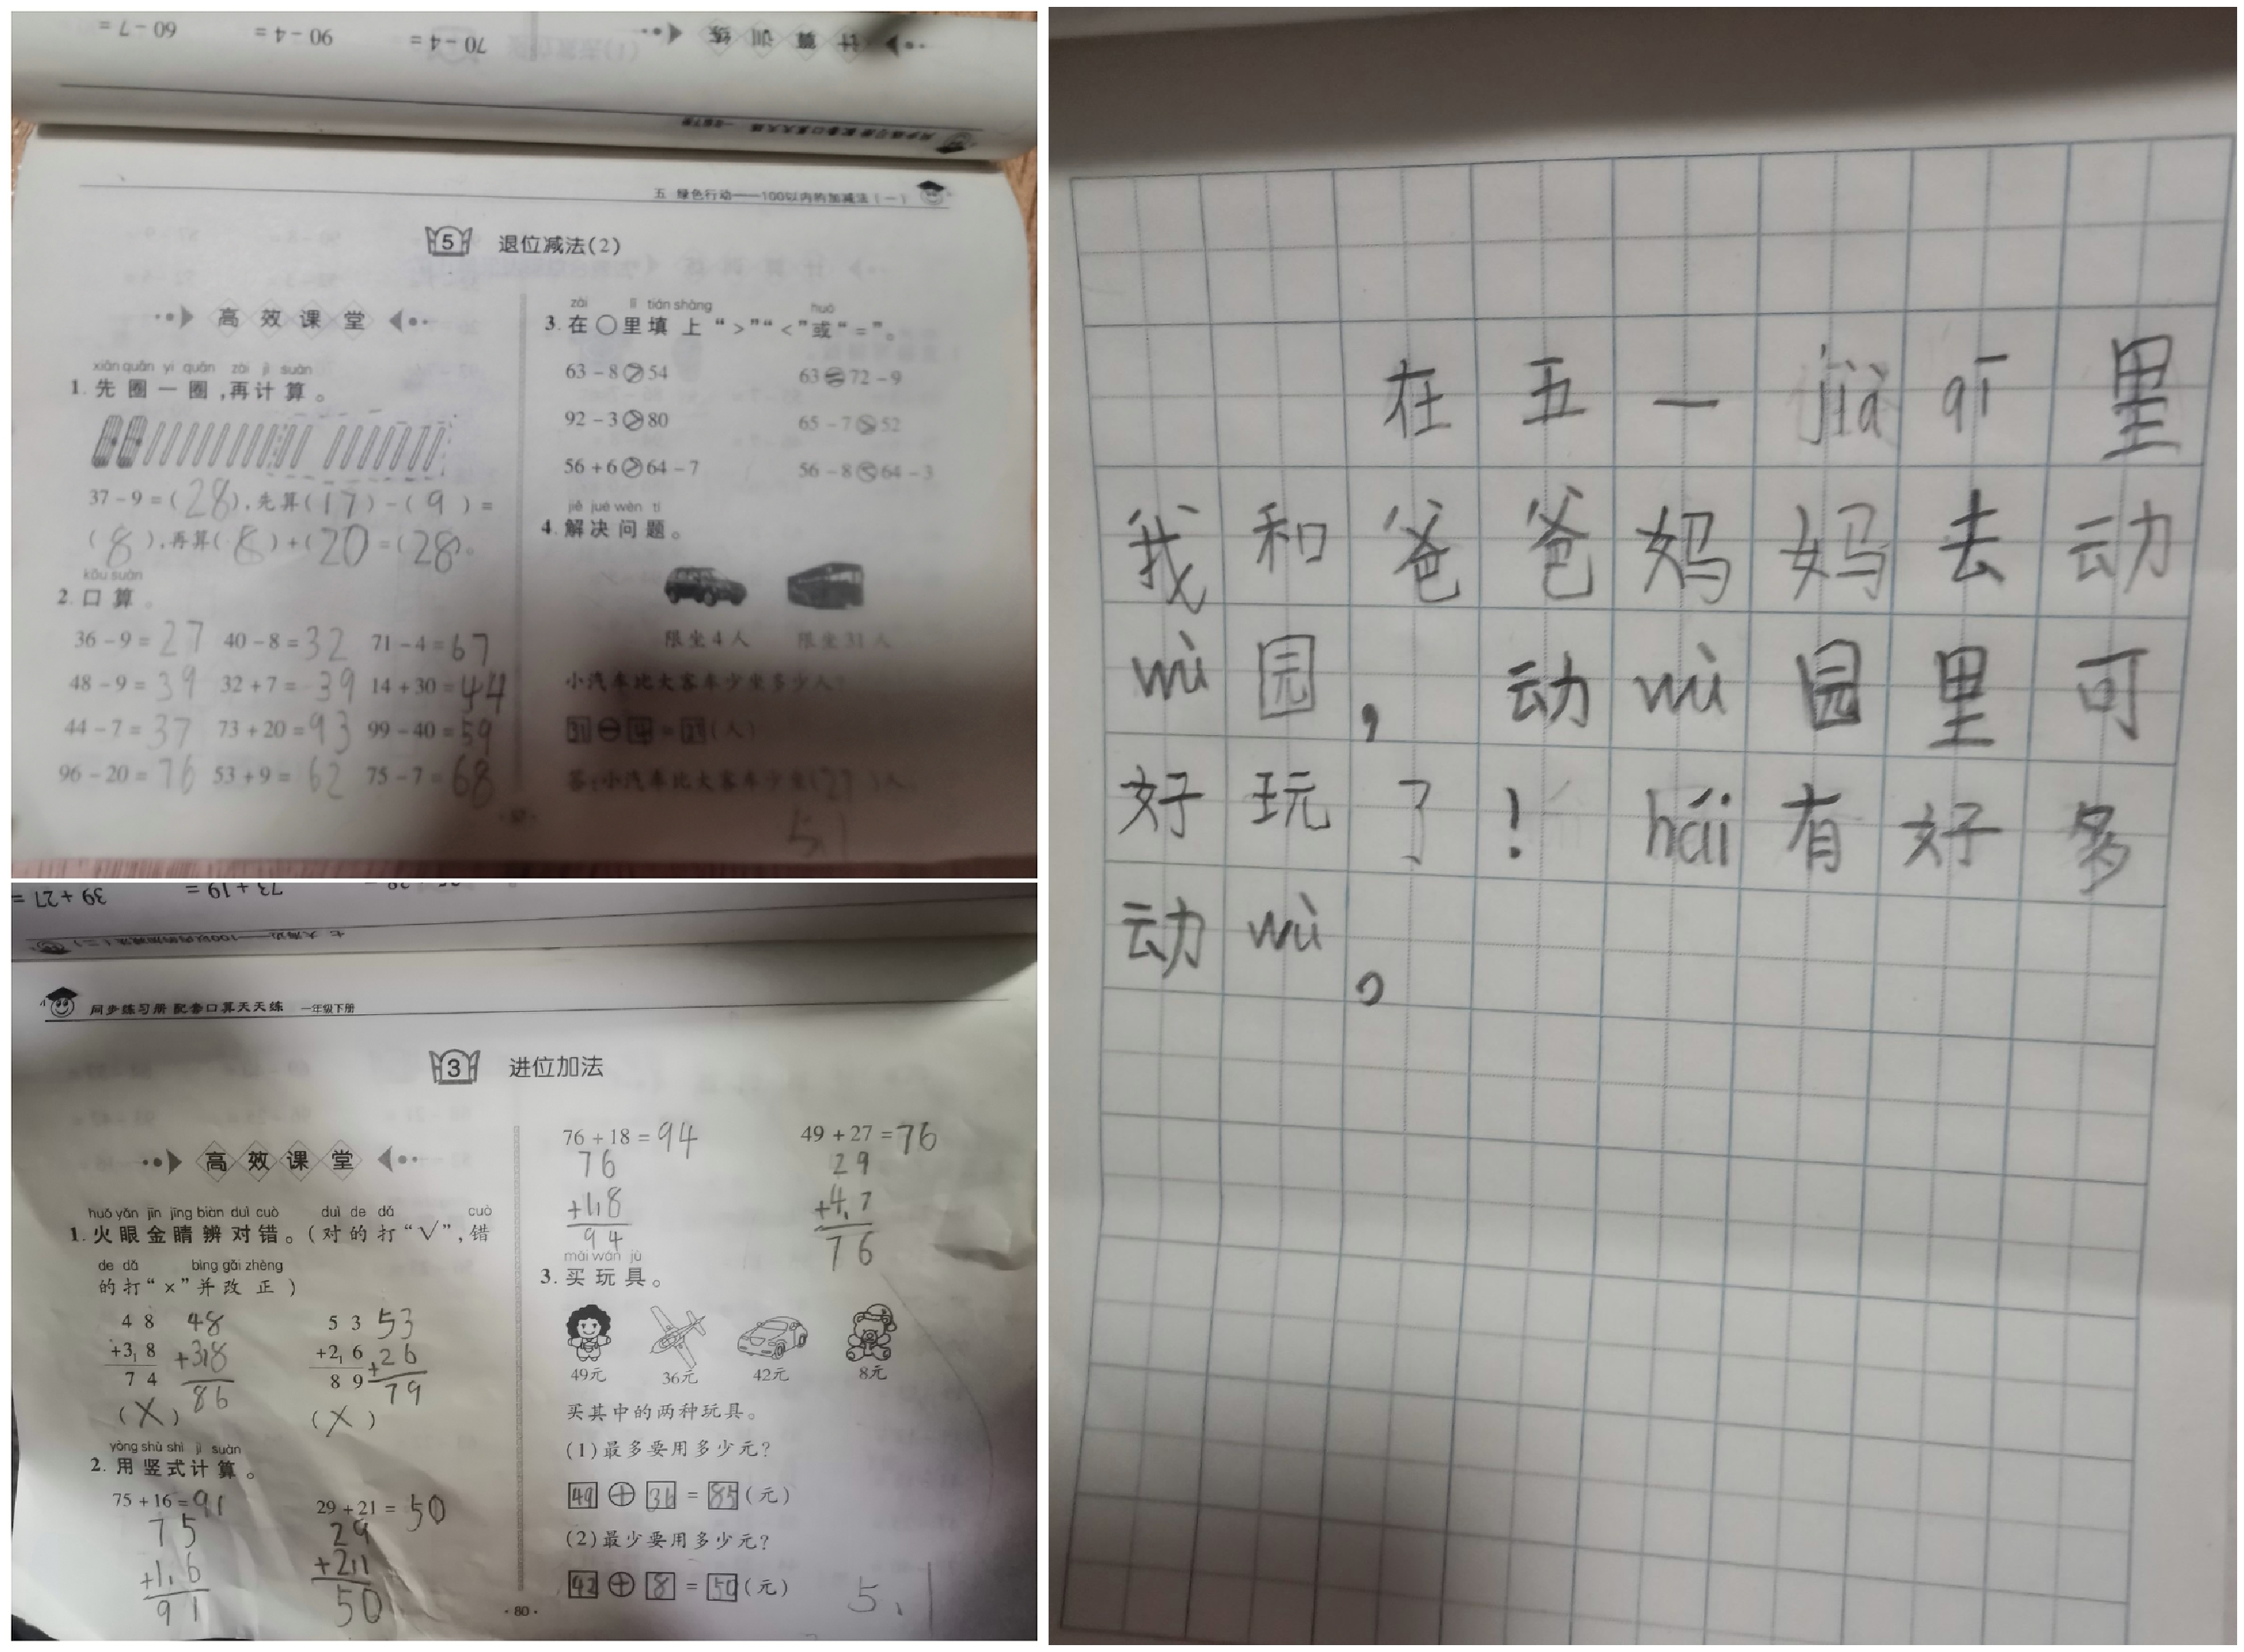 60 - 7 =
90 - 4 =
70 - 4 =
计算训练
五 绿色行动——100以内的加减法(一)
5 退位减法(2)
高效课堂
xiān quān yi quān zài jì suàn
1. 先圈一圈,再计算。
37 - 9 = (28), 先算(17) - (9) =
(8), 再算(8) + (20 = (28)。
kǒu suàn
2. 口算。
36 - 9 = 27 40 - 8 = 32 71 - 4 = 67
48 - 9 = 39 32 + 7 = 39 14 + 30 = 44
44 - 7 = 37 73 + 20 = 93 99 - 40 = 59
96 - 20 = 76 53 + 9 = 62 75 - 7 = 68
zài lǐ tián shàng huò
3. 在○里填上“>”“<”或“=”。
63 - 8 > 54 63 = 72 - 9
92 - 3 > 80 65 - 7 > 52
56 + 6 > 64 - 7 56 - 8 < 64 - 3
jiě jué wèn tí
4. 解决问题。
限坐4人 限坐31人
小汽车比大客车少坐多少人?
31 - 4 = 27 (人)
答:小汽车比大客车少坐(27)人。
5.1
39 + 27 =
73 + 19 =
七 大海边——100以内的加减法(二)
同步练习册 配套口算天天练 一年级下册
3 进位加法
高效课堂
huǒ yǎn jīn jīng biàn duì cuò duì de dǎ cuò
1. 火眼金睛辨对错。(对的打“√”,错
de dǎ bìng gǎi zhèng
的打“×”并改正)
48 48 53 53
+38 +38 +26 +26
74 86 89 79
(X) (X)
yòng shù shì jì suàn
2. 用竖式计算。
75 + 16 = 91 29 + 21 = 50
75 29
+16 +21
91 50
76 + 18 = 94 49 + 27 = 76
76 29
+18 +47
94 76
mǎi wán jù
3. 买玩具。
49元 36元 42元 8元
买其中的两种玩具。
(1)最多要用多少元?
49 + 36 = 85 (元)
(2)最少要用多少元?
42 + 8 = 50 (元)
5.1
· 80 ·
在五一jià qī里
我和爸爸妈妈去动
wù园,动wù园里可
好玩了!hái有好多
动wù。